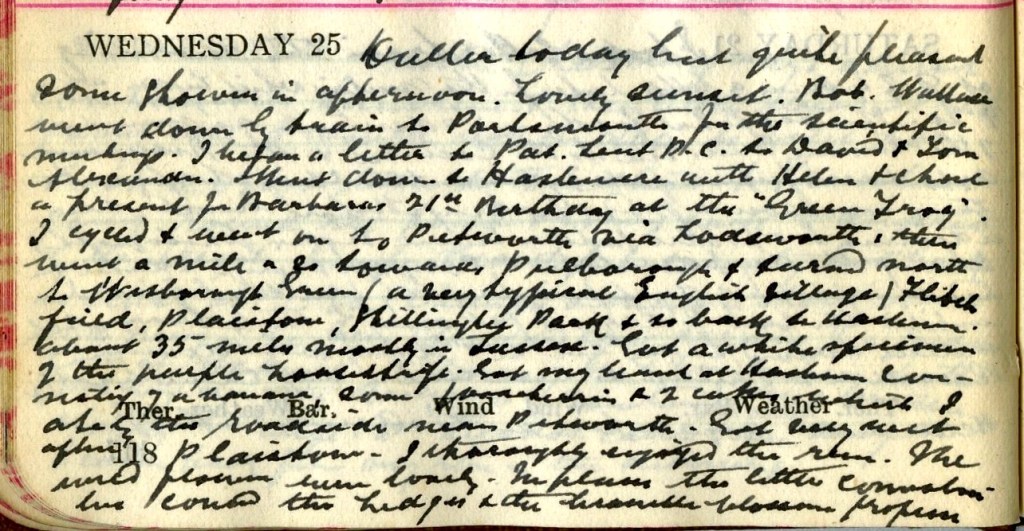 WEDNESDAY 25 Duller today but quite pleasant
some showers in afternoon. Lovely sunset. Bob. Wallace
went down by train to Portsmouth for the scientific
meetings. I began a letter to Pat. Sent P.C. to David & Tom
Alexander. Went down to Haslemere with Helen & chose
a present for Barbara's 21st Birthday at the "Green Frog".
I cycled & went on to Petworth via Lodsworth, then
went a mile or so towards Pulborough & turned north
to Wisborough Green (a very typical English village)
field, Plaistow, Shillinglee Park & so back to Haslemere.
about 35 miles mostly in Sussex. Got a white specimen
of the purple Got my lunch at Haslemere con-
sisting of a banana, some & 2 which I
Ther. Bar. Wind Weather
ate by the roadside near Petworth. Got very wet
after Plaistow. I thoroughly enjoyed the run. The
118
wild flowers were lovely. In places the little
the hedges & the blossom